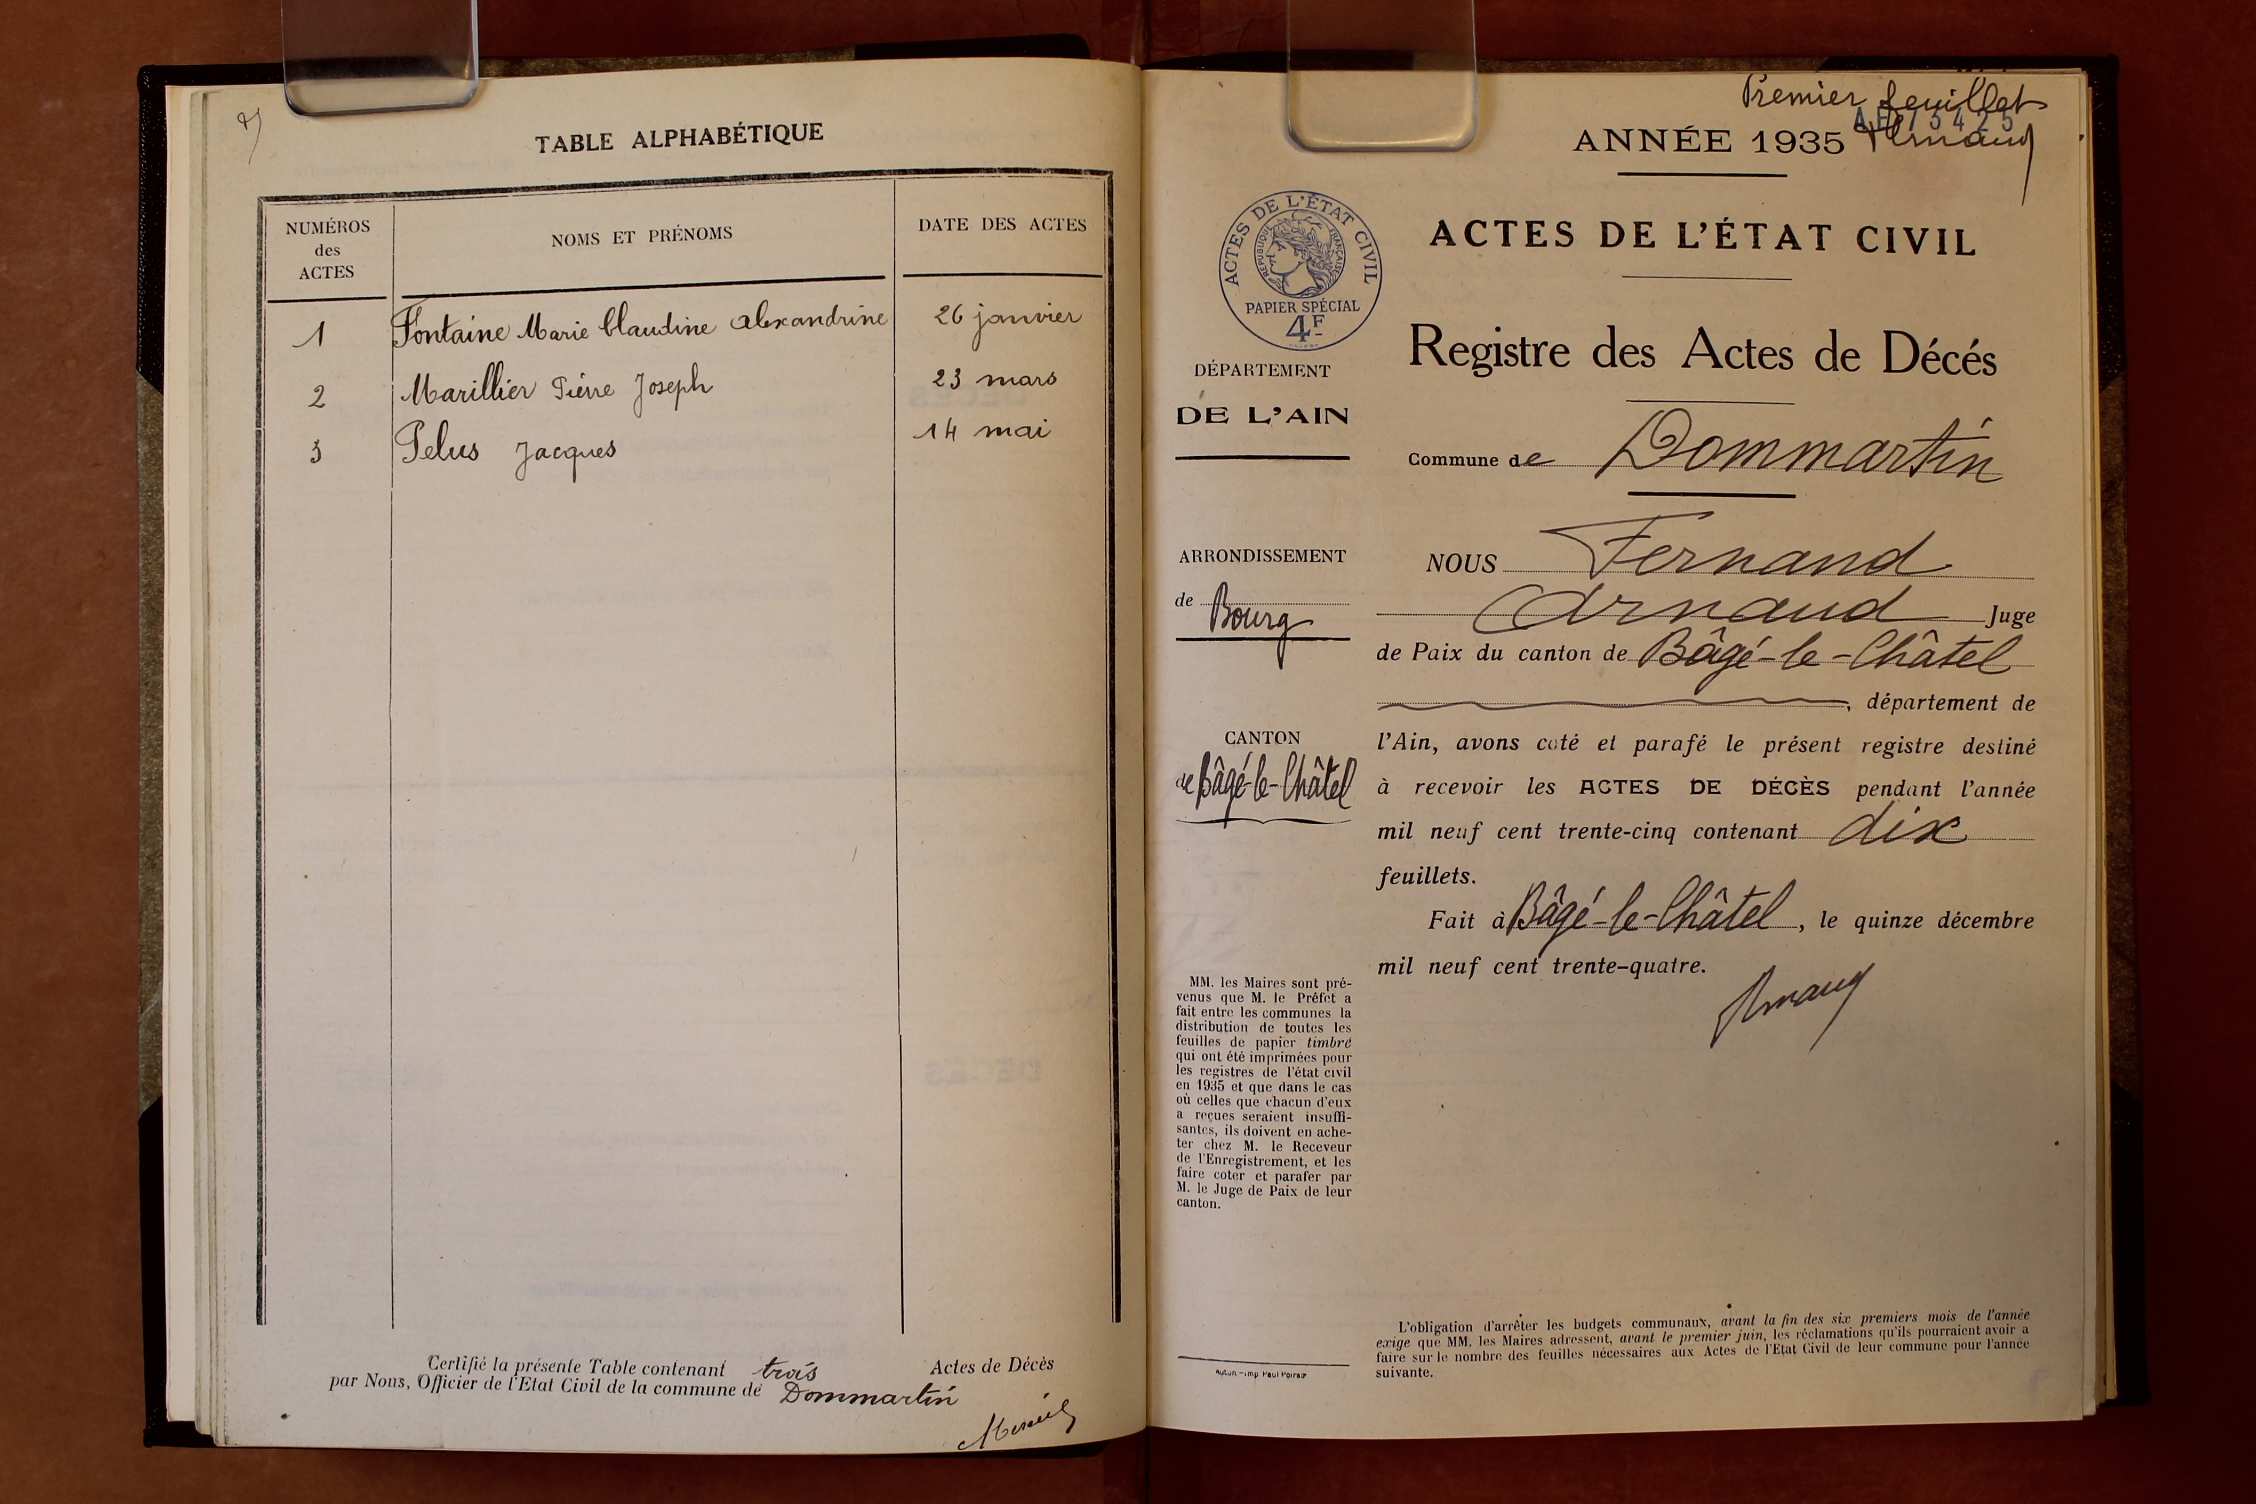 TABLE ALPHABÉTIQUE
NUMÉROS
des
ACTES
NOMS ET PRÉNOMS
DATE DES ACTES
1 Fontaine Marie Claudine Alexandrine 26 janvier
2 Marillier Pierre Joseph 23 mars
3 Pelus Jacques 14 mai
Certifié la présente Table contenant trois Actes de Décès
par Nous, Officier de l'Etat Civil de la commune de Dommartin
Premier feuillet
ANNÉE 1935 Arnaud
ACTES DE L'ÉTAT CIVIL
RÉPUBLIQUE FRANÇAISE
PAPIER SPÉCIAL
4F
ACTES DE L'ÉTAT CIVIL
Registre des Actes de Décés
Commune de Dommartin
DÉPARTEMENT
DE L'AIN
ARRONDISSEMENT
de Bourg
CANTON
de Bâgé-le-Châtel
MM. les Maires sont pré-
venus que M. le Préfet a
fait entre les communes la
distribution de toutes les
feuilles de papier timbré
qui ont été imprimées pour
les registres de l'état civil
en 1935 et que dans le cas
où celles que chacun d'eux
a reçues seraient insuffi-
santes, ils doivent en ache-
ter chez M. le Receveur
de l'Enregistrement, et les
faire coter et parafer par
M. le Juge de Paix de leur
canton.
Autun - Imp Paul Poirson
NOUS Fernand
Arnaud Juge
de Paix du canton de Bâgé-le-Châtel
, département de
l'Ain, avons coté et parafé le présent registre destiné
à recevoir les ACTES DE DÉCÈS pendant l'année
mil neuf cent trente-cinq contenant dix
feuillets.
Fait à Bâgé-le-Châtel, le quinze décembre
mil neuf cent trente-quatre.
Arnaud
L'obligation d'arrêter les budgets communaux, avant la fin des six premiers mois de l'année
exige que MM. les Maires adressent, avant le premier juin, les réclamations qu'ils pourraient avoir a
faire sur le nombre des feuilles nécessaires aux Actes de l'Etat Civil de leur commune pour l'année
suivante.